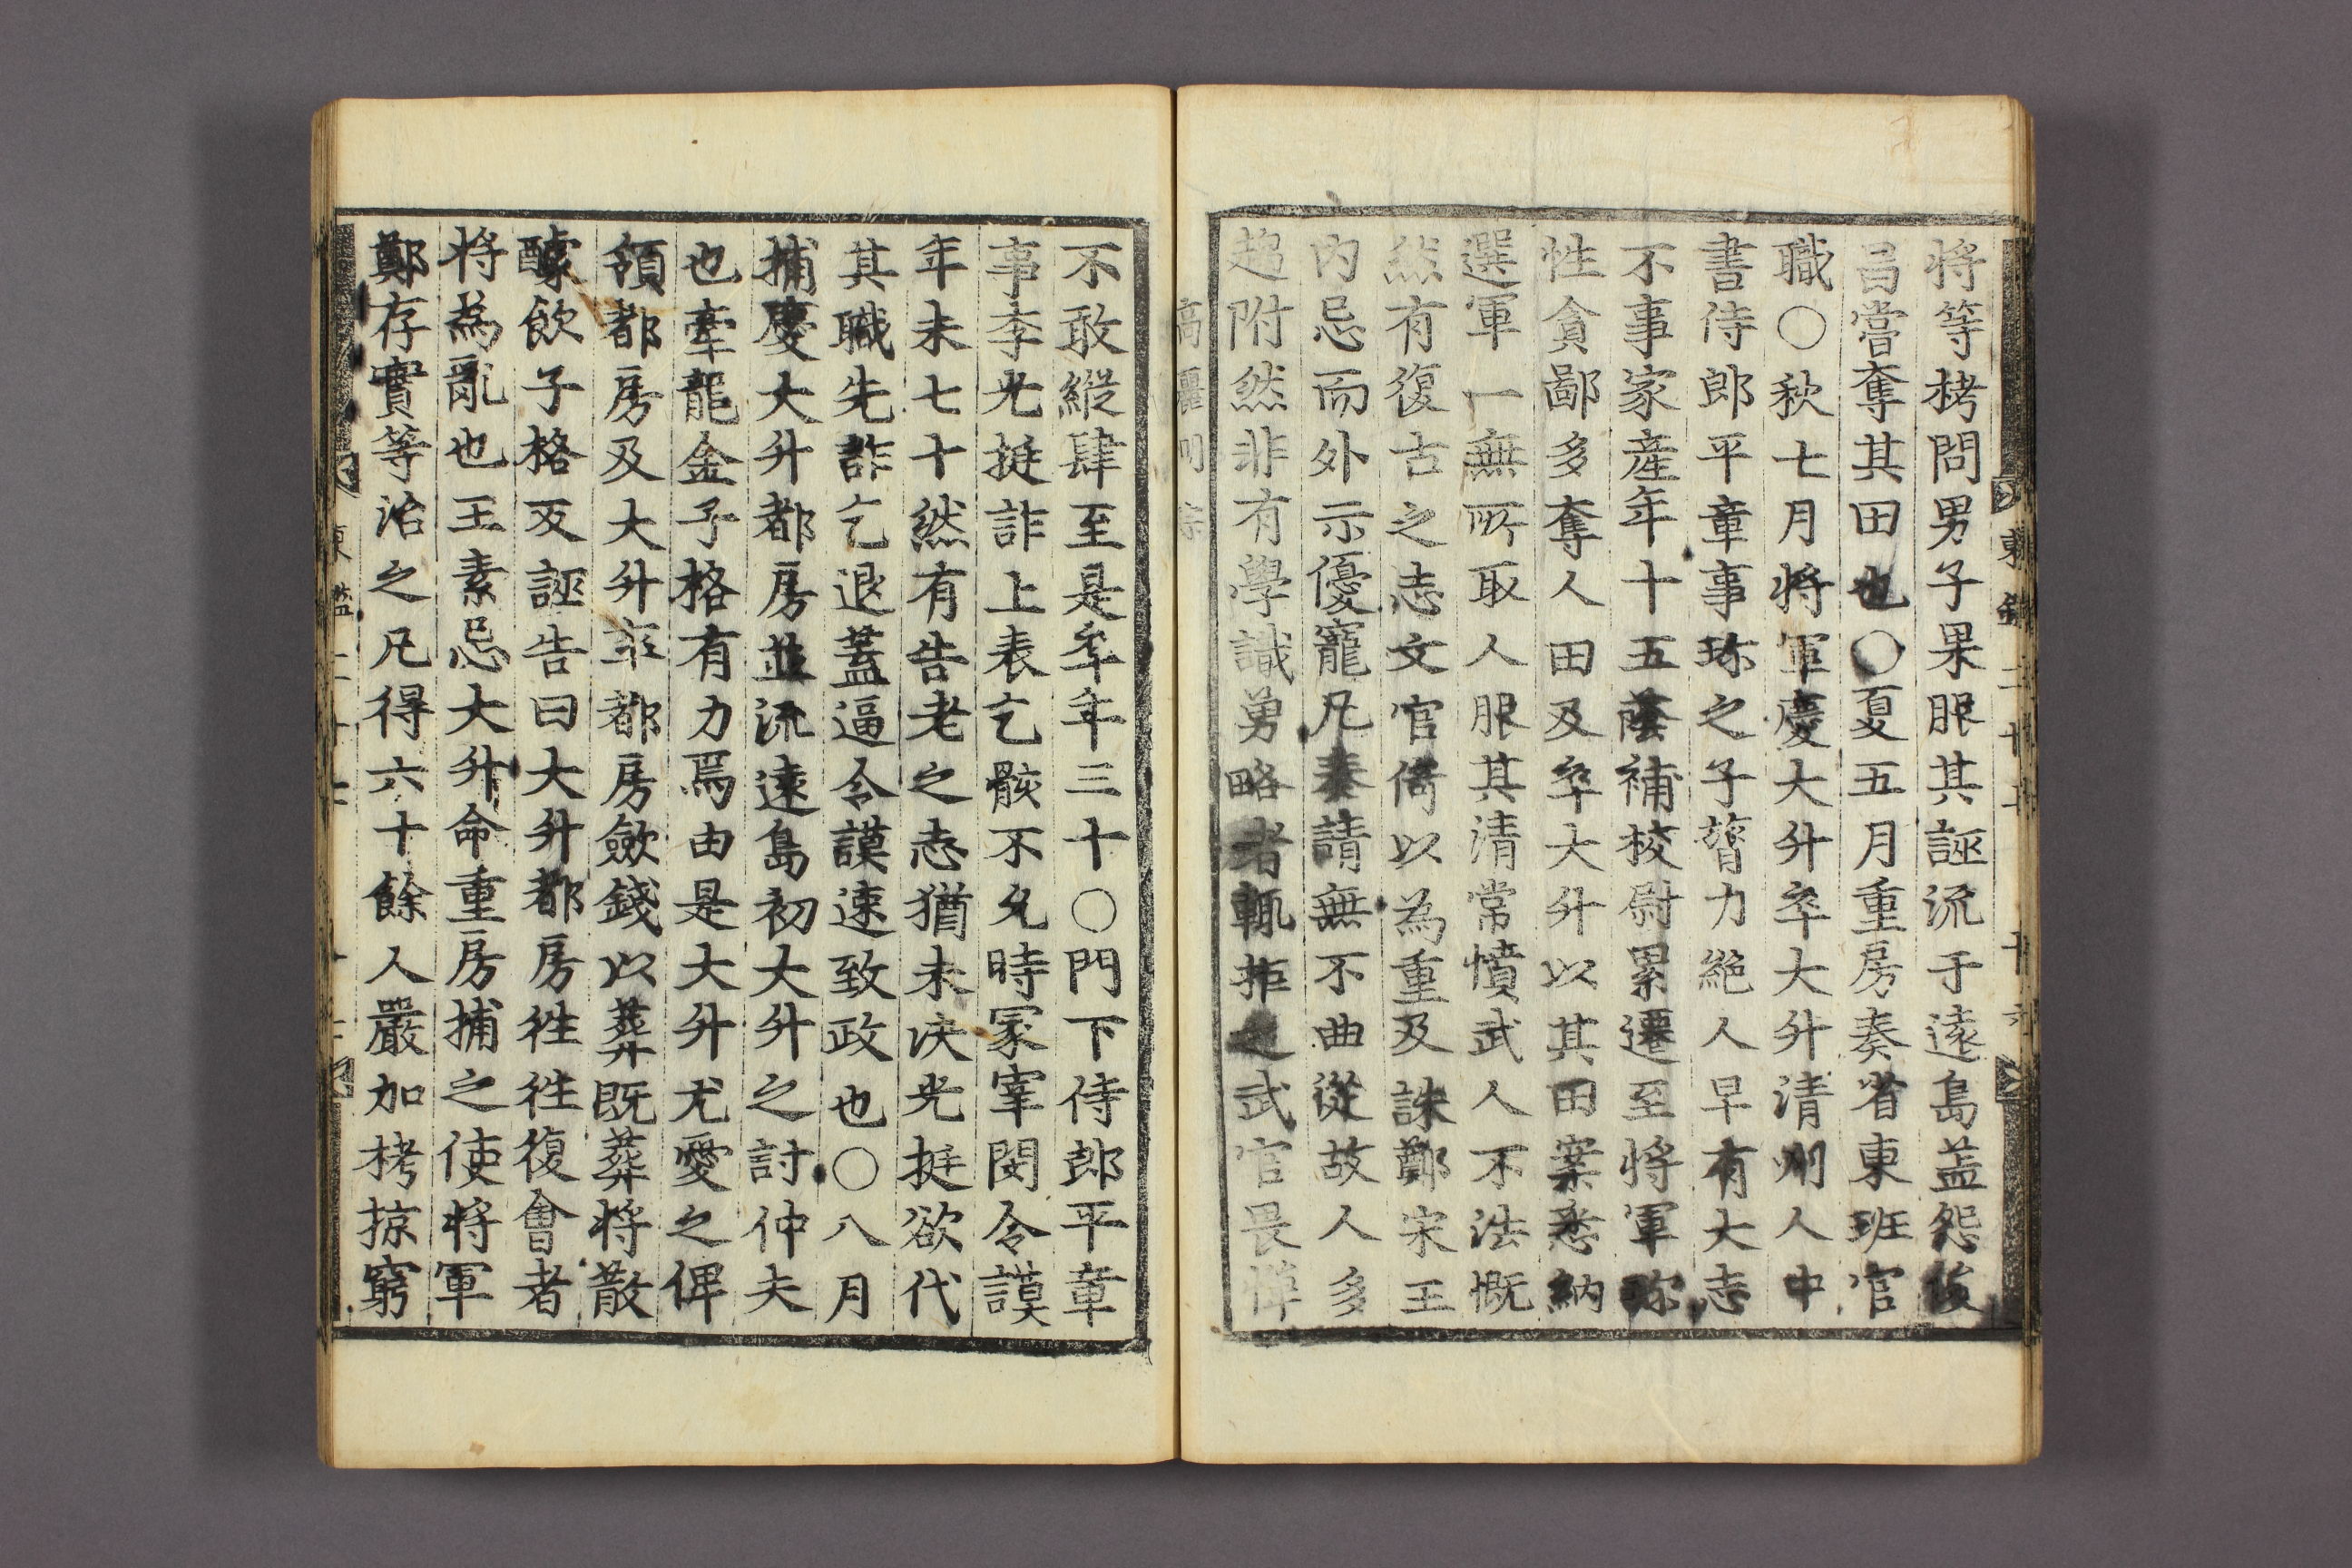 東鑑二十七
十六
将等栲問男子果服其誣流于遠島盖怨俊
昌嘗奪其田也○夏五月重房奏省東班官
職○秋七月將軍慶大升卒大升清州人中
書侍郎平章事珎之子膂力絶人早有大志
不事家產年十五蔭補校尉累遷至將軍珎
性貪鄙多奪人田及卒大升以其田案悉納
選軍一無所取人服其清常憤武人不法慨
然有復古之志文官倚以為重及誅鄭宋王
内忌而外示優寵凡奏請無不曲從故人多
趍附然非有學識勇略者輒拒之武官畏憚
高麗明宗
不敢縱肆至是卒年三十○門下侍郎平章
事李光挺詐上表乞骸不允時冢宰閔令謨
年未七十然有告老之志猶未决光挺欲代
其職先詐乞退盖逼令謨速致政也○八月
捕慶大升都房並流遠島初大升之討仲夫
也牽龍金子格有力焉由是大升尤愛之俾
領都房及大升卒都房歛錢以葬既葬将散
醵飲子格反誣告曰大升都房徃徃復會者
将為亂也王素忌大升命重房捕之使将軍
鄭存實等治之凡得六十餘人嚴加栲掠窮
東鑑二十七